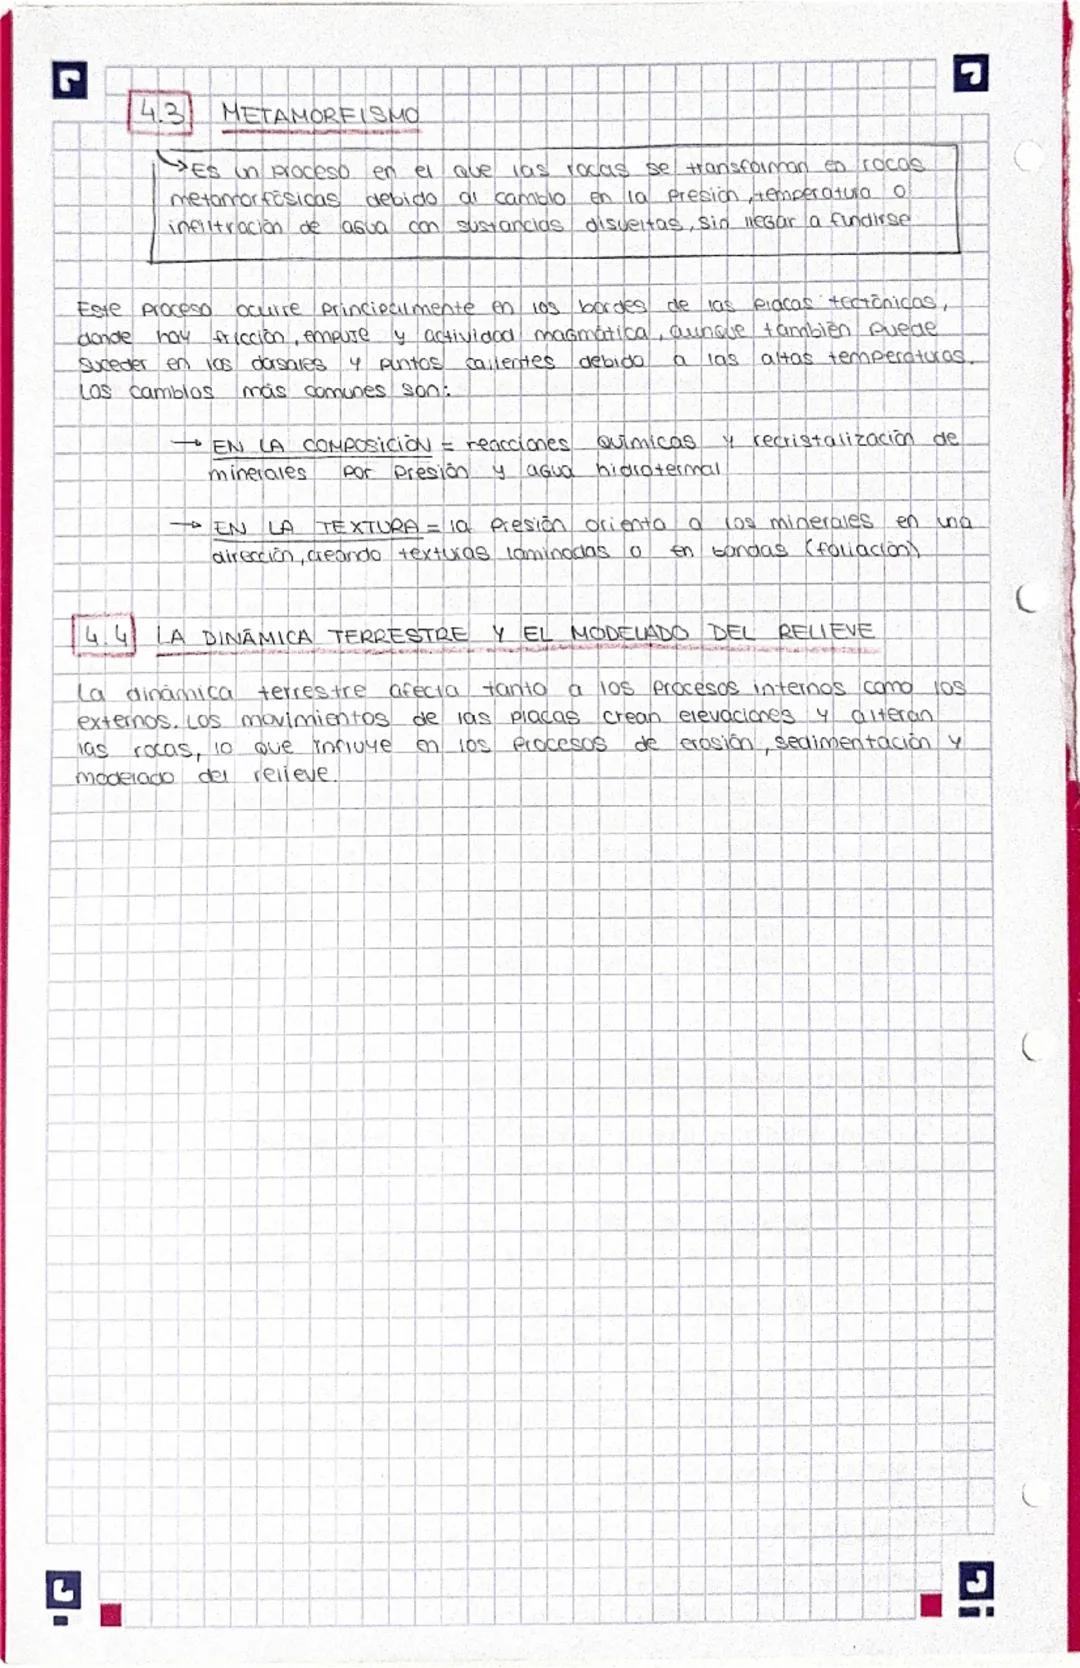 4.3 METAMORFISMO
→ Es un proceso en el que las rocas se transforman en rocas
metamorfósicas debido al cambio en la presión, temperatura o
infiltración de agua con sustancias disueltas, sin llegar a fundirse
Este proceso ocurre principalmente en los bordes de las placas tectónicas,
donde hay fricción, empuje y actividad magmática, aunque también puede
suceder en las dorsales y puntos calientes debido a las altas temperaturas.
Los cambios más comunes son:
→ EN LA COMPOSICIÓN = reacciones químicas y recristalización de
minerales por presión y agua hidrotermal
→ EN LA TEXTURA = la presión orienta a los minerales en una
dirección, creando texturas laminadas o en bandas (foliación)
4.4 LA DINÁMICA TERRESTRE Y EL MODELADO DEL RELIEVE
La dinámica terrestre afecta tanto a los procesos internos como los
externos. Los movimientos de las placas crean elevaciones y alteran
las rocas, lo que influye en los procesos de erosión, sedimentación y
modelado del relieve.